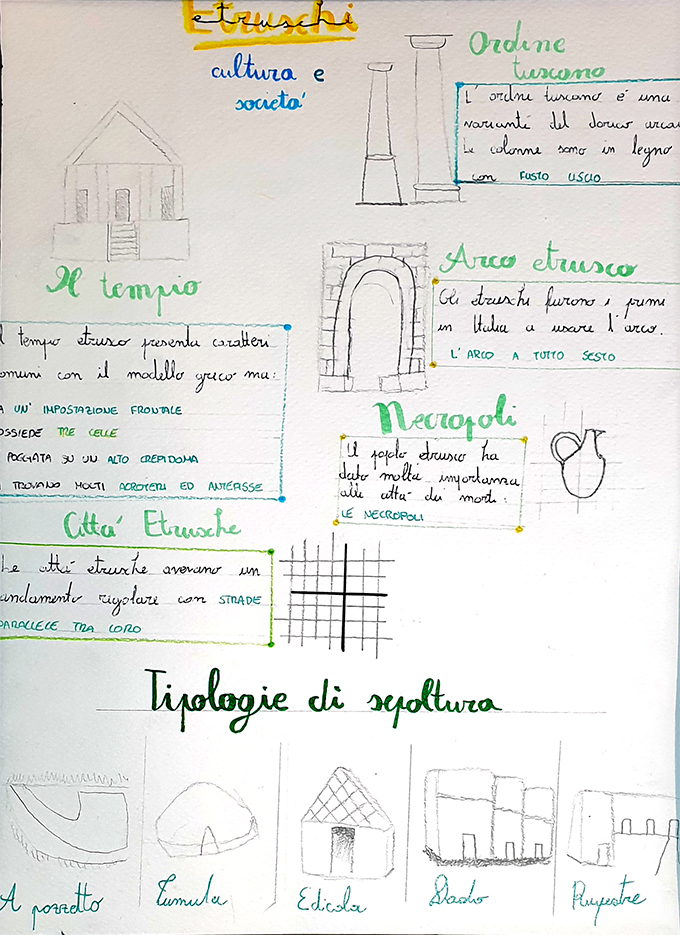 Etruschi
cultura e
societa'
Ordine
tuscano
L'ordine tuscano e' una
variante del dorico arca
Le colonne sono in legno
con FUSTO LISCIO
Il tempio
l tempio etrusco presenta caratteri
omuni con il modello greco ma:
A UN' IMPOSTAZIONE FRONTALE
OSSIEDE TRE CELLE
POGGIATA SU UN ALTO CREPIDOMA
I TROVANO MOLTI ACROTERI ED ANTEFISSE
Arco etrusco
Gli etruschi furono i primi
in Italia a usare l'arco.
L'ARCO A TUTTO SESTO
Necropoli
Il popolo etrusco ha
dato molta importanza
alle citta' dei morti:
LE NECROPOLI
Citta' Etrusche
Le citta' etrusche avevano un
andamento regolare con STRADE
PARALLELE TRA LORO
Tipologie di sepoltura
A pozzetto
Tumulo
Edicola
Dado
Rupestre